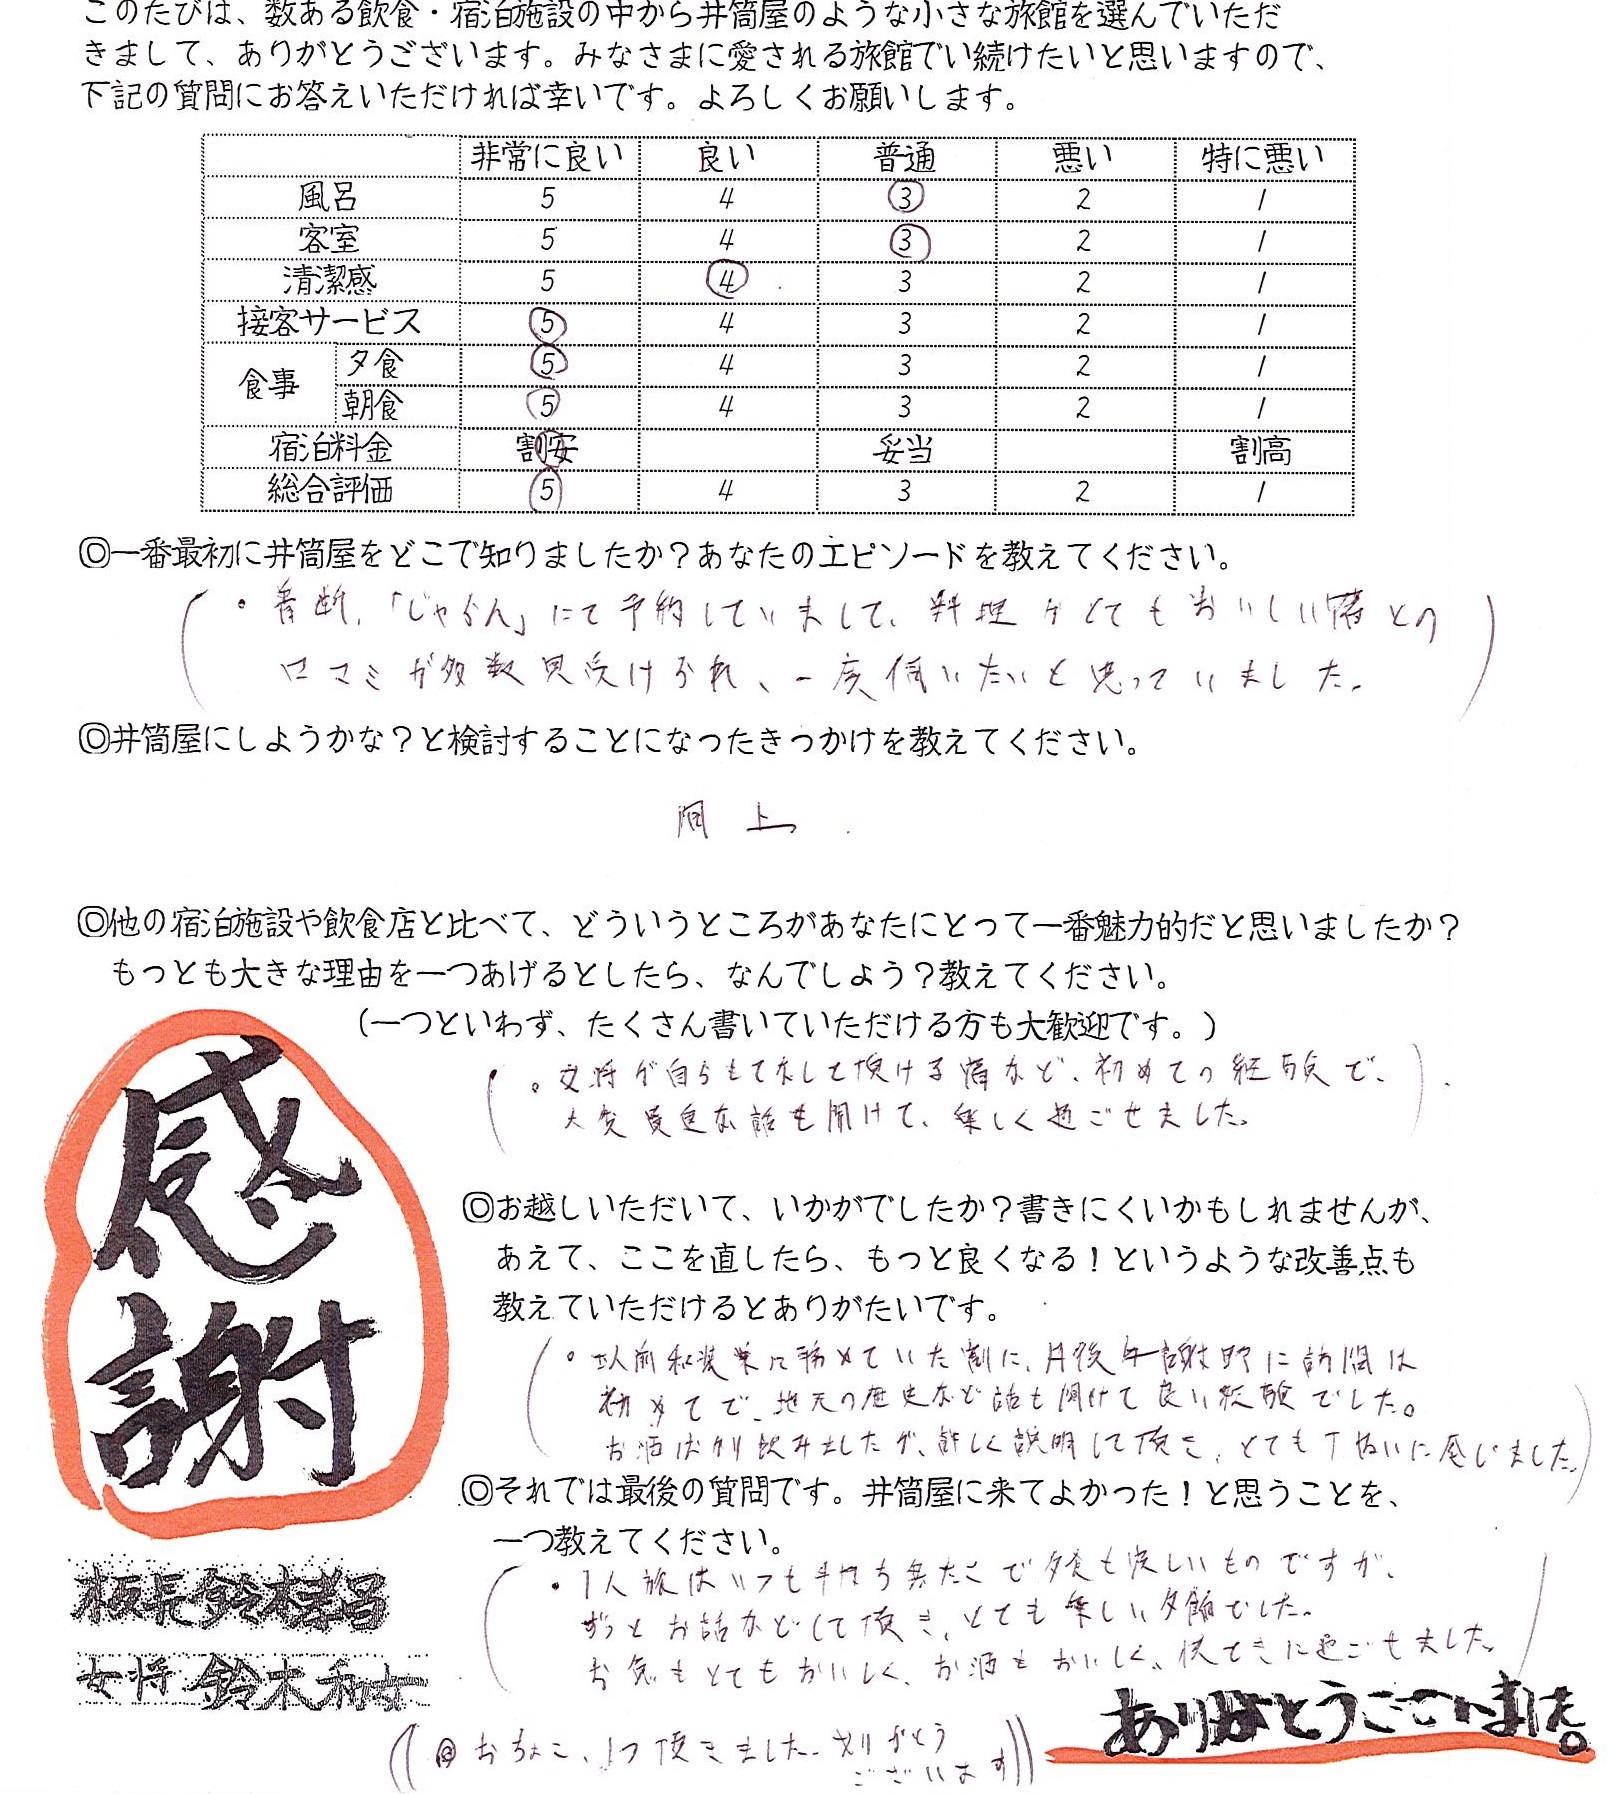 このたびは、数ある飲食・宿泊施設の中から井筒屋のような小さな旅館を選んでいただ
きまして、ありがとうございます。みなさまに愛される旅館でい続けたいと思いますので、
下記の質問にお答えいただければ幸いです。よろしくお願いします。
非常に良い 良い 普通 悪い 特に悪い
風呂 5 4 3 2 1
客室 5 4 3 2 1
清潔感 5 4 3 2 1
接客サービス 5 4 3 2 1
食事 夕食 5 4 3 2 1
朝食 5 4 3 2 1
宿泊料金 割安 妥当 割高
総合評価 5 4 3 2 1
◎一番最初に井筒屋をどこで知りましたか？あなたのエピソードを教えてください。
・普断、「じゃらん」にて予約していまして、料理がとてもおいしい等との
口コミが多数見受けられ、一度伺いたいと思っていました。
◎井筒屋にしようかな？と検討することになったきっかけを教えてください。
同上
◎他の宿泊施設や飲食店と比べて、どういうところがあなたにとって一番魅力的だと思いましたか？
もっとも大きな理由を一つあげるとしたら、なんでしよう？教えてください。
（一つといわず、たくさん書いていただける方も大歓迎です。）
。女将が自らもてなして頂ける等など、初めての経験で、
大変貴重な話も聞けて、楽しく過ごせました。
感謝
◎お越しいただいて、いかがでしたか？書きにくいかもしれませんが、
あえて、ここを直したら、もっと良くなる！というような改善点も
教えていただけるとありがたいです。
・以前和装業に務めていた割に、丹後与謝野に訪問は
初めてで、地元の歴史など話も聞けて良い経験でした。
お酒ばかり飲みましたが、詳しく説明して頂き、とても丁寧に感じました。
◎それでは最後の質問です。井筒屋に来てよかった！と思うことを、
一つ教えてください。
・1人旅はいつも手持ち無たこで夕食も淋しいものですが、
ずっとお話などして頂き、とても楽しい夕餉でした。
もとてもおいしく、お酒もおいしく、快てきに過ごせました。
板長 鈴木孝昌
女将 鈴木和女
おちょこ、1つ頂きました。ありがとう
ございます
ありがとうございました。